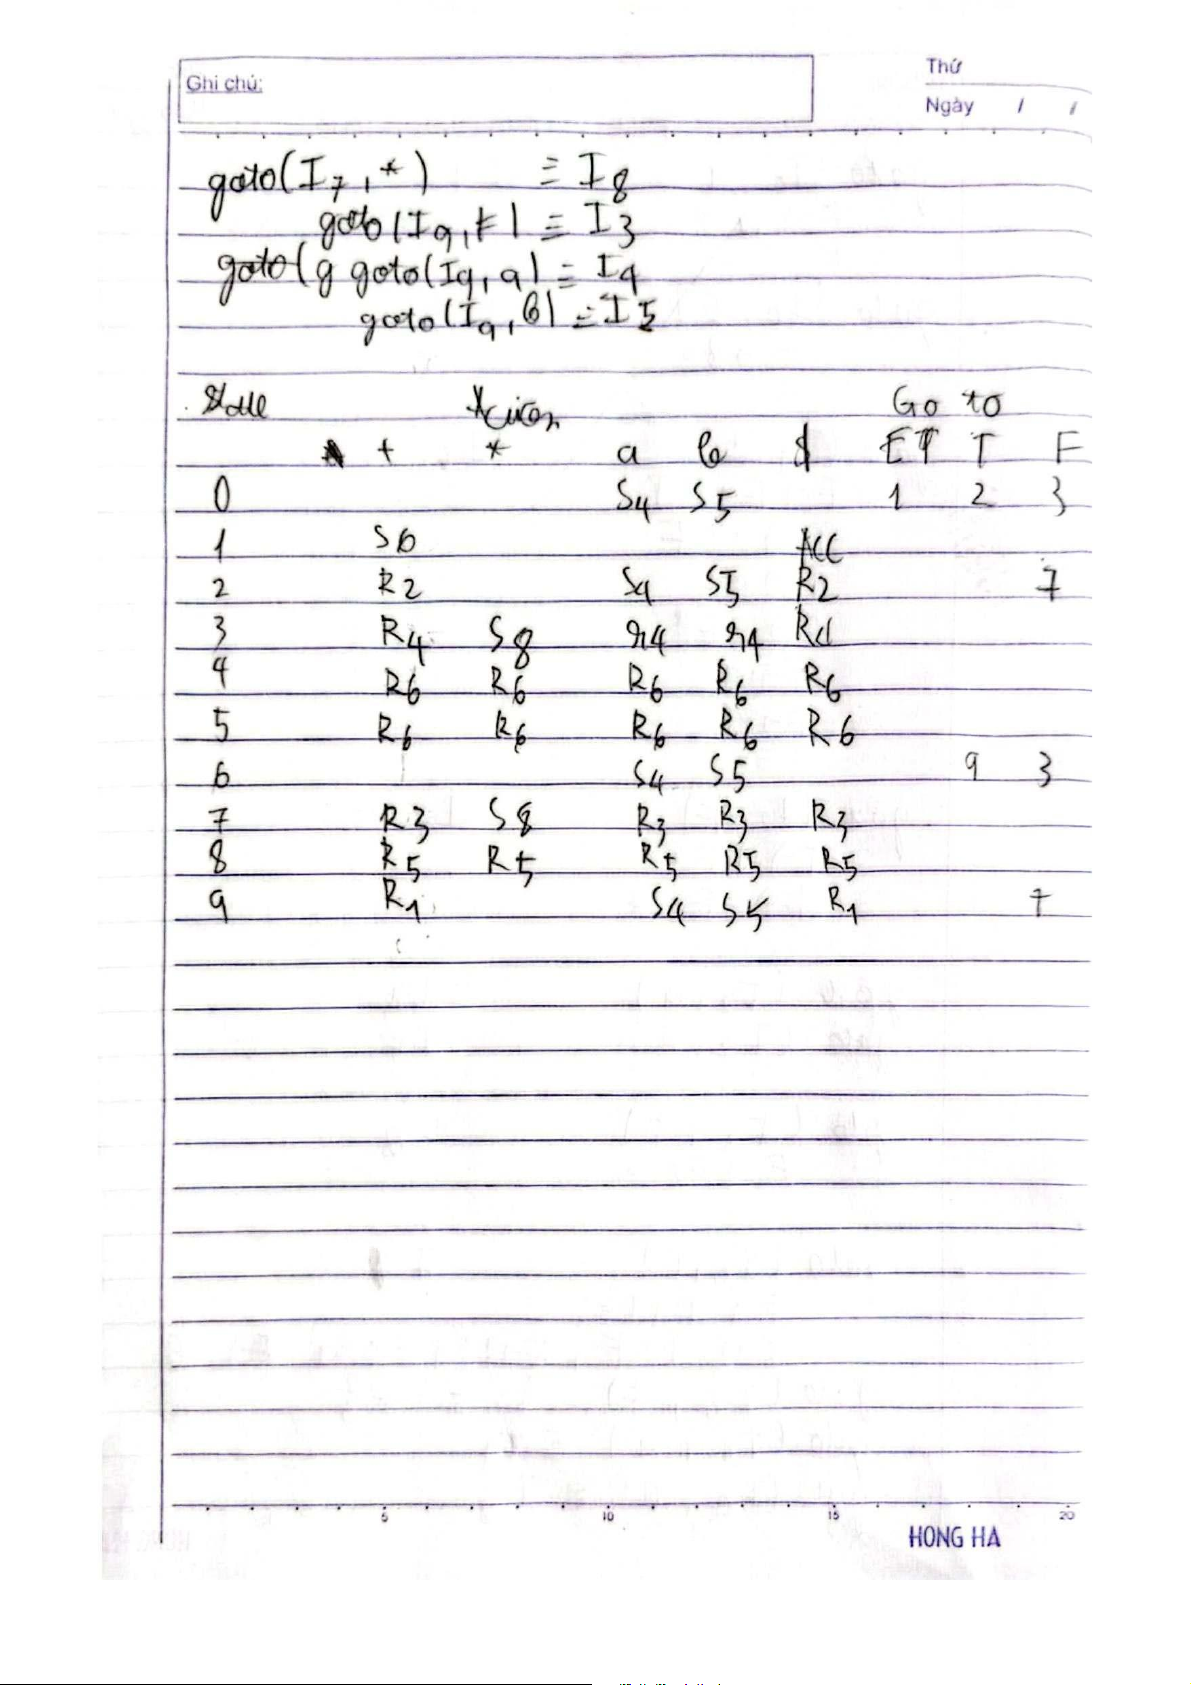 Ghi chú:
Thứ
Ngày / /
goto(I7, *) ≡ I8
goto(I9, F) ≡ I3
goto(g goto(I9, a) ≡ I4
goto(I9, b) ≡ I5
State Action Go to
+ * a b $ E T F
0 S4 S5 1 2 3
1 S6 ACC
2 R2 S4 S5 R2 7
3 R4 S8 r4 r4 R4
4 R6 R6 R6 R6 R6
5 R6 R6 R6 R6 R6
6 S4 S5 9 3
7 R3 S8 R3 R3 R3
8 R5 R5 R5 R5 R5
9 R1 S4 S5 R1 7
5 10 15 20
HONG HA